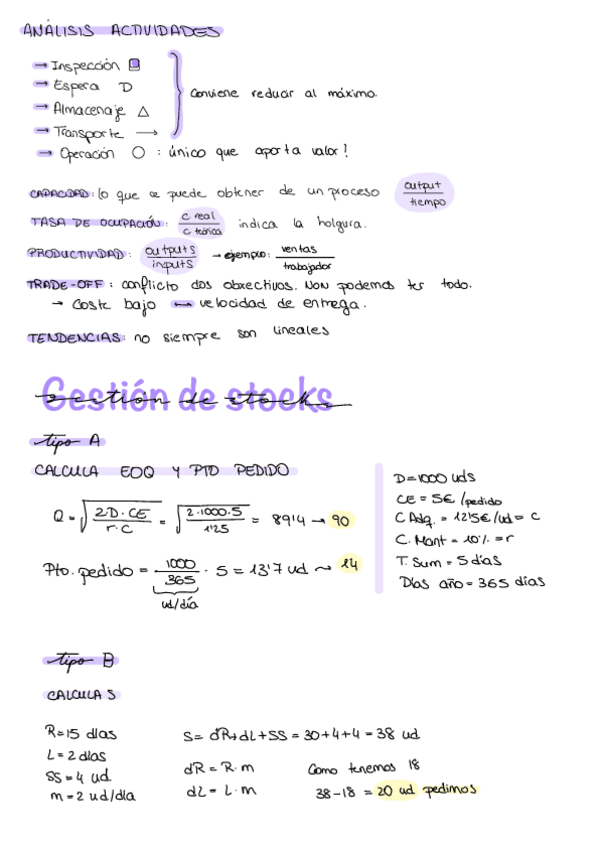 ANÁLISIS ACTIVIDADES
→ Inspección
→ Espera D
→ Almacenaje △
→ Transporte →
Conviene reducir al máximo.
→ Operación ○ : único que aporta valor!
CAPACIDAD: lo que se puede obtener de un proceso output/tiempo
TASA DE OCUPACIÓN: c real/c teórica indica la holgura.
PRODUCTIVIDAD: outputs/inputs → ejemplo: ventas/trabajador
TRADE-OFF: conflicto dos obxectivos. Non podemos ter todo.
→ Coste bajo ↔ velocidad de entrega.
TENDENCIAS: no siempre son lineales
Gestión de stocks
tipo A
CALCULA EOQ Y PTO PEDIDO
Q = √(2D·CE/r·C) = √(2·1000·5/1'25) = 89'4 → 90
Pto. pedido = 1000/365 · 5 = 13'7 ud ~ 14
ud/día
D = 1000 uds
CE = 5€/pedido
C Adq. = 12'5€/ud = C
C. Mant = 10% = r
T. Sum = 5 días
Días año = 365 días
tipo B
CALCULA S
R = 15 días
L = 2 días
SS = 4 ud
m = 2 ud/día
S = dR+dL+SS = 30+4+4 = 38 ud
dR = R·m
dL = L·m
Como tenemos 18
38-18 = 20 ud pedimos